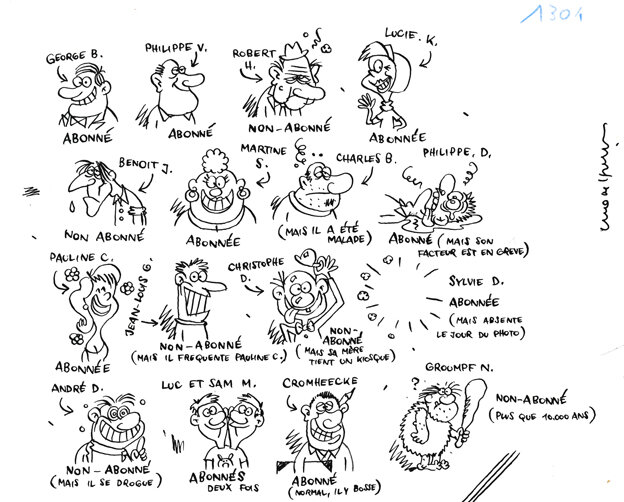 1304
GEORGE B.
ABONNÉ
PHILIPPE V.
ABONNÉ
ROBERT
H.
NON-ABONNÉ
LUCIE.K.
ABONNÉE
BENOIT J.
NON ABONNÉ
MARTINE
S.
ABONNÉE
CHARLES B.
(MAIS IL A ÉTÉ
MALADE)
PHILIPPE.D.
ABONNÉ (MAIS SON
FACTEUR EST EN GREVE)
PAULINE C.
ABONNÉE
JEAN-LOUIS G.
NON-ABONNÉ
(MAIS IL FREQUENTE PAULINE C.)
CHRISTOPHE
D.
NON-
ABONNÉ
(MAIS SA MÈRE
TIENT UN KIOSQUE)
SYLVIE D.
ABONNÉE
(MAIS ABSENTE
LE JOUR DU PHOTO)
ANDRÉ D.
NON-ABONNÉ
(MAIS IL SE DROGUE)
LUC ET SAM M.
ABONNÉS
DEUX FOIS
CROMHEECKE
ABONNÉ
(NORMAL, IL Y BOSSE)
GROUMPF N.
?
NON-ABONNÉ
(PLUS QUE 10.000 ANS)